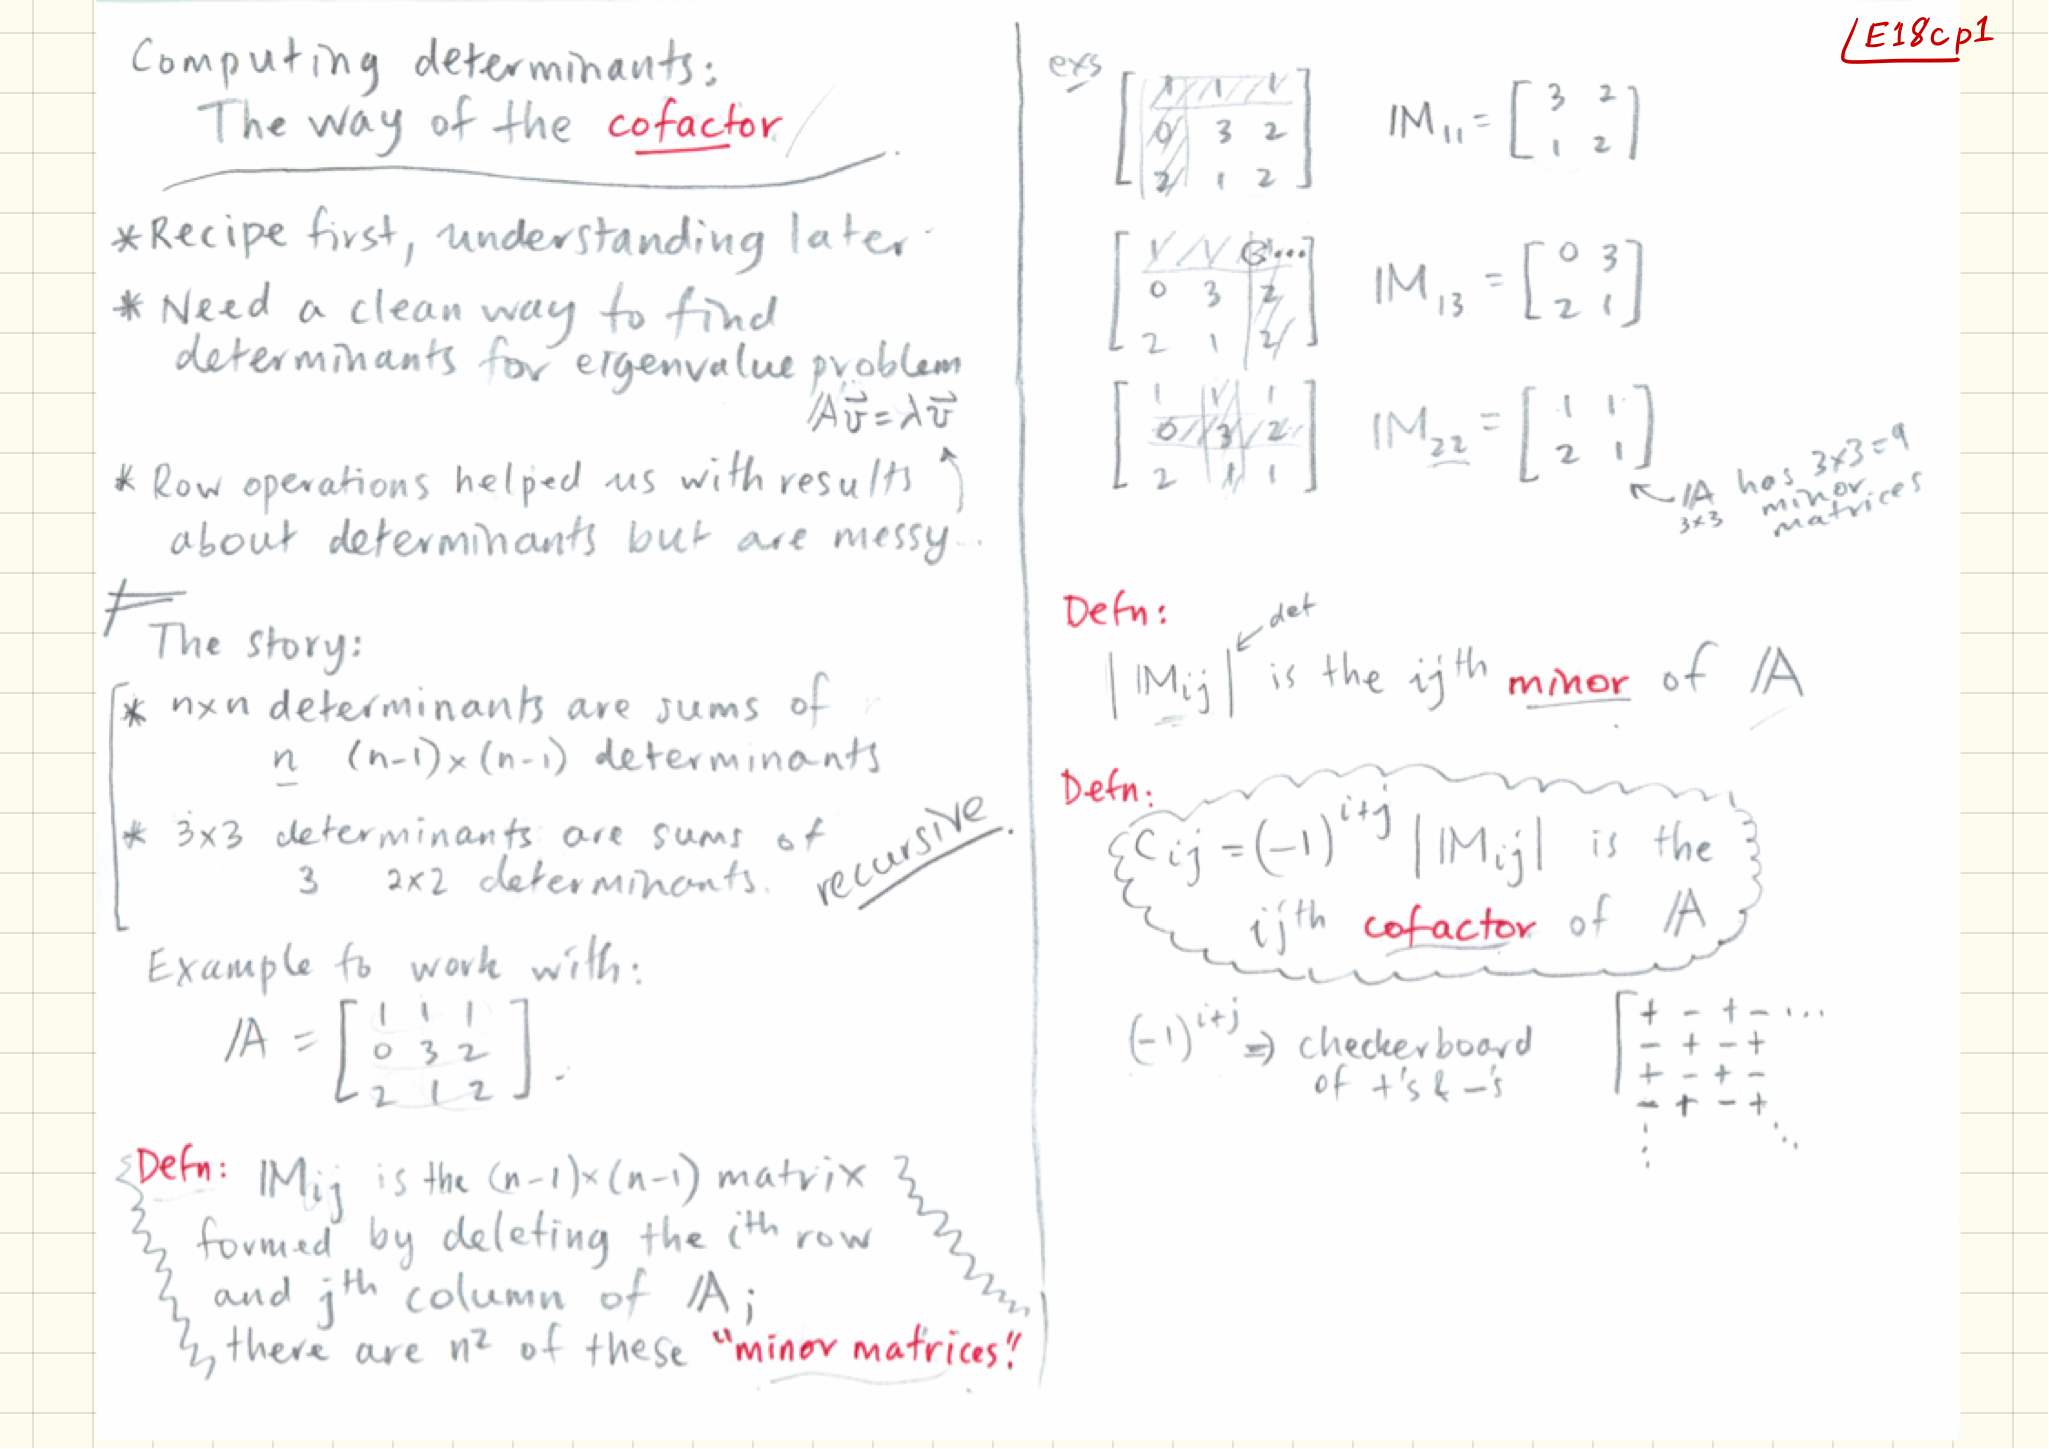 Computing determinants:
The way of the cofactor
* Recipe first, understanding later
* Need a clean way to find
determinants for eigenvalue problem
𝔸v⃗ = λv⃗
* Row operations helped us with results
about determinants but are messy...
The story:
* n×n determinants are sums of
n (n-1)×(n-1) determinants
* 3×3 determinants are sums of
3 2×2 determinants.
recursive.
Example to work with:
𝔸 = [1 1 1
0 3 2
2 1 2].
Defn: 𝕄ij is the (n-1)×(n-1) matrix
formed by deleting the ith row
and jth column of 𝔸;
there are n² of these "minor matrices."
E18cp1
exs
[1 1 1
0 3 2
2 1 2] 𝕄11 = [3 2
1 2]
[1 1 ...
0 3 2
2 1 2] 𝕄13 = [0 3
2 1]
[1 1 1
0 3 2
2 1 1] 𝕄22 = [1 1
2 1]
𝔸 has 3×3=9
3×3 minor
matrices
Defn:
det
|𝕄ij| is the ijth minor of 𝔸
Defn:
Cij = (-1)^i+j |𝕄ij| is the
ijth cofactor of 𝔸
(-1)^i+j ⇒ checkerboard
of +'s & -'s
[+ - + - ...
- + - +
+ - + -
- + - +
⋮ ⋱